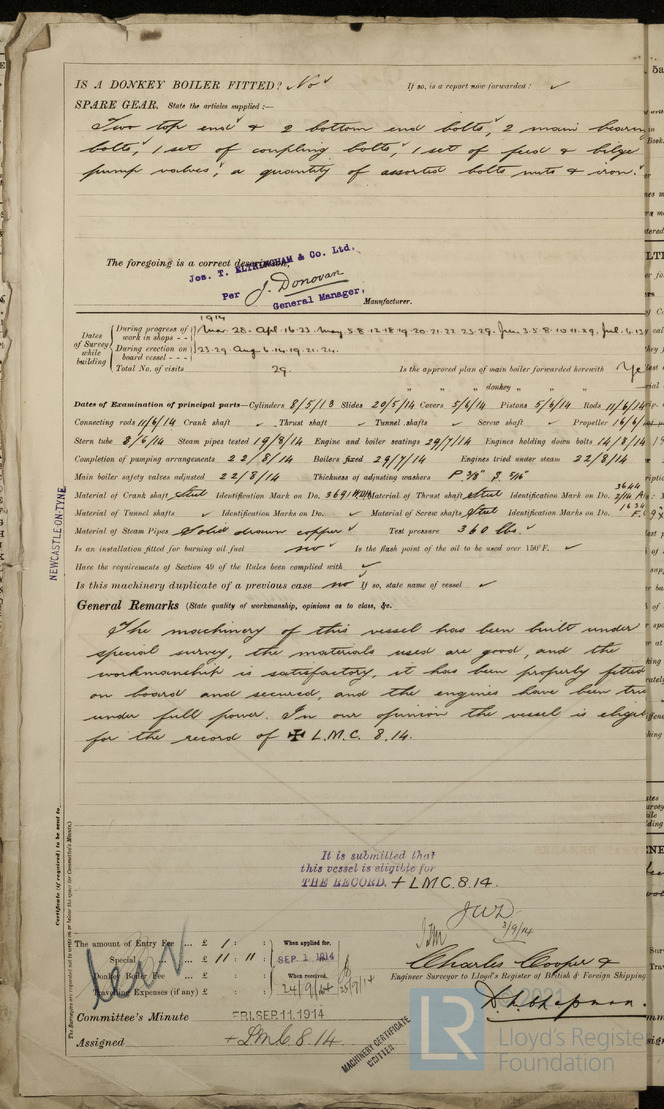 IS A DONKEY BOILER FITTED? No ✓ If so, is a report now forwarded? ✓
SPARE GEAR. State the articles supplied:—
Two top end & 2 bottom end bolts, 2 main bearing
bolts, 1 set of coupling bolts, 1 set of feed & bilge
pump valves, a quantity of assorted bolts nuts & iron.
The foregoing is a correct description,
Jos. T. ELTRINGHAM & Co. Ltd.
Per J. Donovan
General Manager. Manufacturer.
1914
Dates of Survey while building
During progress of work in shops - - Mar. 28. Apl. 16. 23. May. 5. 8. 12. 18. 19. 20. 21. 22. 23. 29. Jun. 3. 5. 8. 10. 11. 29. Jul. 6. 13
During erection on board vessel - - - 23. 29. Aug. 6. 14. 19. 21. 24.
Total No. of visits 29. Is the approved plan of main boiler forwarded herewith Ye
" " " donkey " " "
Dates of Examination of principal parts—Cylinders 8/5/13 Slides 20/5/14 Covers 5/6/14 Pistons 5/6/14 Rods 11/6/14
Connecting rods 11/6/14 Crank shaft ✓ Thrust shaft ✓ Tunnel shafts ✓ Screw shaft ✓ Propeller 16/6/
Stern tube 8/6/14 Steam pipes tested 19/8/14 Engine and boiler seatings 29/7/14 Engines holding down bolts 14/8/14
Completion of pumping arrangements 22/8/14 Boilers fixed 29/7/14 Engines tried under steam 22/8/14
Main boiler safety valves adjusted 22/8/14 Thickness of adjusting washers P 3/8" S 5/16"
Material of Crank shaft Steel Identification Mark on Do. 3691 Material of Thrust shaft Steel Identification Mark on Do. 3644
Material of Tunnel shafts ✓ Identification Marks on Do. ✓ Material of Screw shafts Steel Identification Marks on Do. 1634
Material of Steam Pipes Solid drawn copper ✓ Test pressure 360 lbs. ✓
Is an installation fitted for burning oil fuel no ✓ Is the flash point of the oil to be used over 150°F. ✓
Have the requirements of Section 49 of the Rules been complied with ✓
Is this machinery duplicate of a previous case no ✓ If so, state name of vessel ✓
General Remarks (State quality of workmanship, opinions as to class, &c.
The machinery of this vessel has been built under
special survey, the materials used are good, and the
workmanship is satisfactory, it has been properly fitted
on board and secured, and the engines have been trie
under full power. In our opinion the vessel is eligib
for the record of ✠ L.M.C. 8.14.
NEWCASTLE-ON-TYNE
Certificate (if required) to be sent to
(The Surveyors are requested not to write on or below the space for Committee's Minute.)
It is submitted that
this vessel is eligible for
THE RECORD. + L.M.C. 8.14.
JWD
3/9/14
The amount of Entry Fee ... £ 1 : :
Special ... £ 11 : 11 :
Donkey Boiler Fee ... £ : :
Travelling Expenses (if any) £ : :
When applied for,
SEP. 1 1914
When received,
24/9/14
Charles Cooper &
Engineer Surveyor to Lloyd's Register of British & Foreign Shipping
D. R. Chapman.
Committee's Minute FRI. SEP. 11. 1914
Assigned + L.M.C. 8.14
MACHINERY CERTIFICATE WRITTEN
© 2021
LR
Lloyd's Register
Foundation